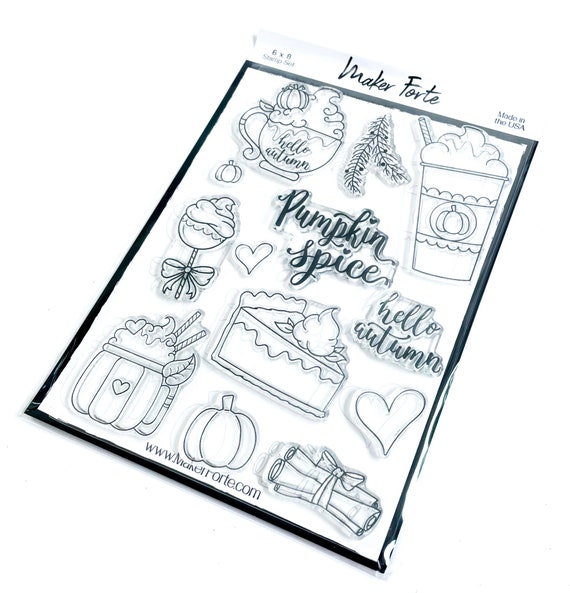 6 x 8
Stamp Set
Maker Forte
Made in
the USA
hello
autumn
Pumpkin
spice
hello
autumn
www.MakerForte.com